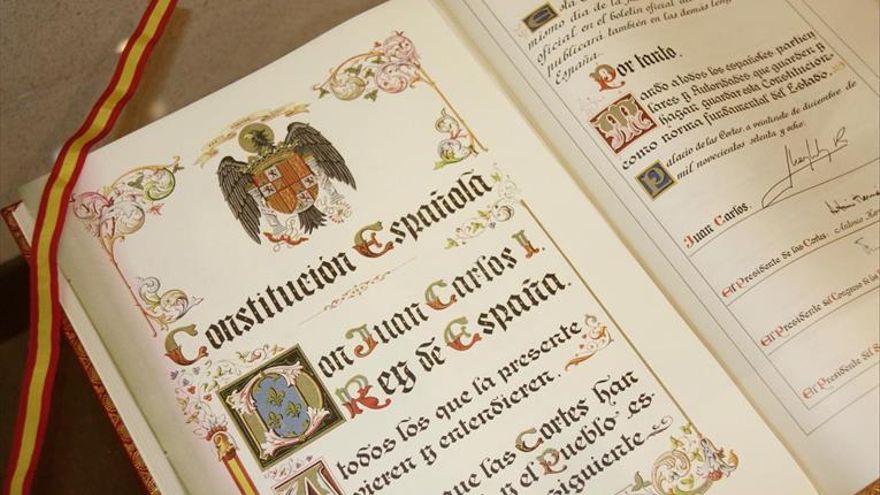 Constitución Española
Don Juan Carlos I.
Rey de España.
A todos los que la presente
vieren y entendieren.
que las Cortes han
y el Pueblo es-
siguiente
sta
mismo día de la
oficial en el boletín oficial del
publicará también en las demás leng
España.
Por tanto.
Mando a todos los españoles. particu
lares y Autoridades. que guarden y
hagan guardar esta Constitución
como norma fundamental del Estado.
Palacio de las Cortes. a veintisiete de diciembre de
mil novecientos setenta y ocho.
Juan Carlos.
El Presidente de las Cortes: Antonio Her
El Presidente del Congreso de los
El Presidente del S
El Presidente del